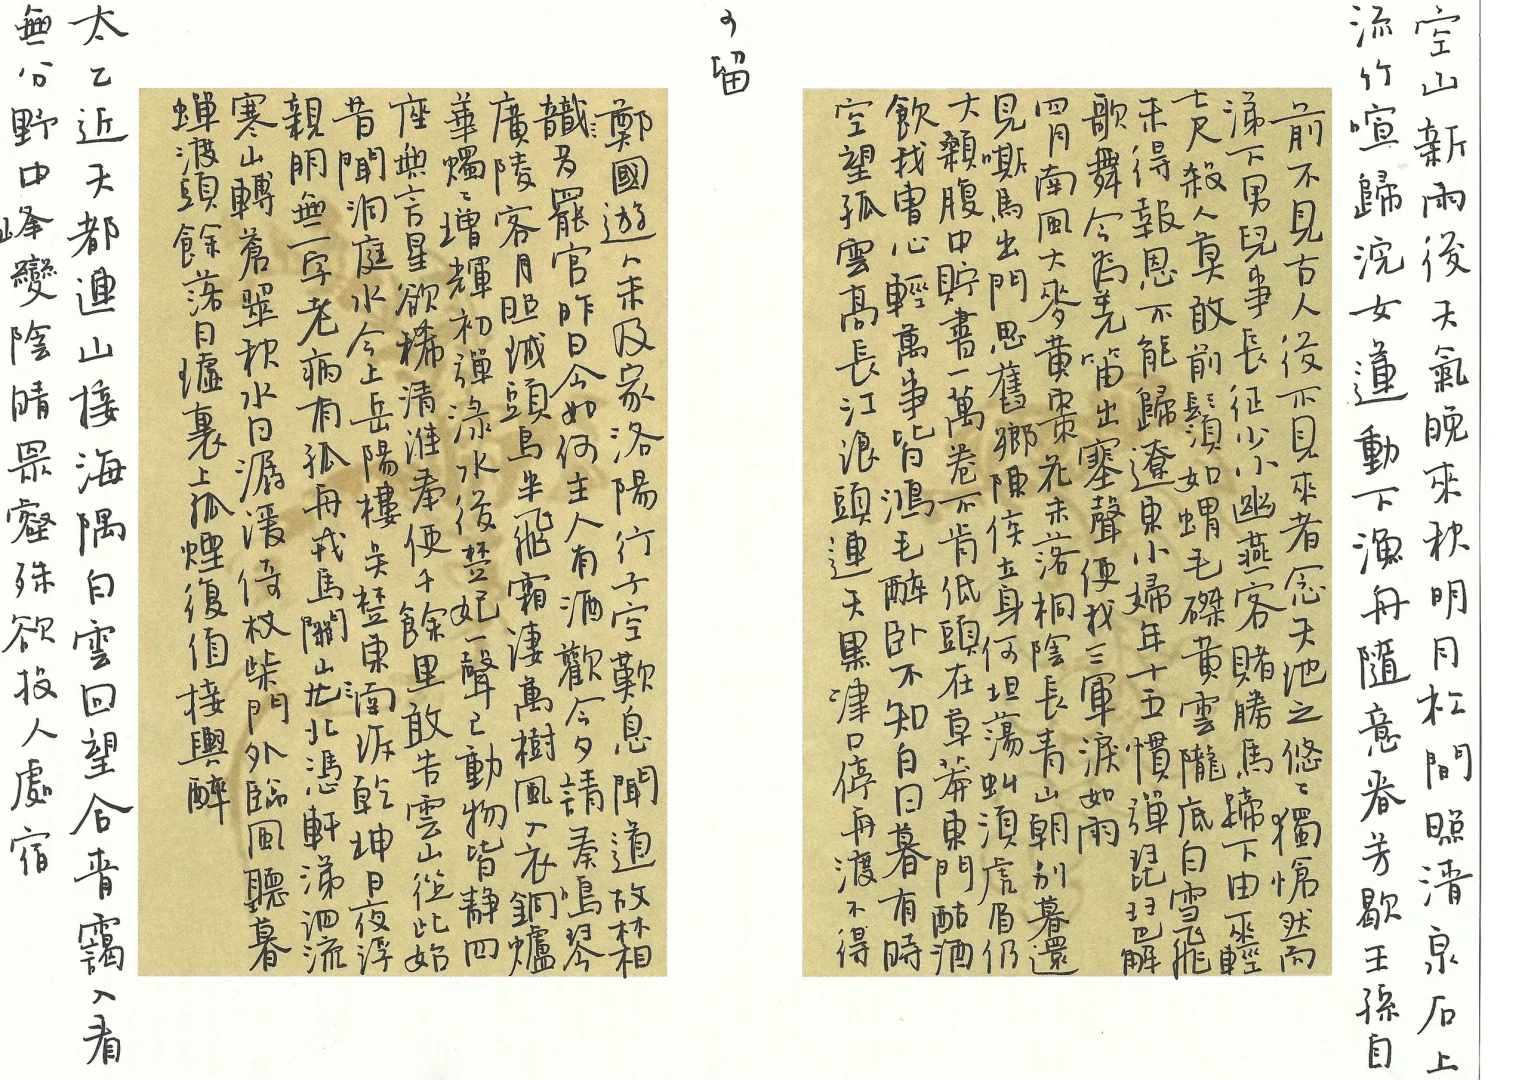 空山新雨後天氣晚來秋明月松間照清泉石上
流竹喧歸浣女蓮動下漁舟隨意春芳歇王孫自
可留
前不見古人後不見來者念天地之悠〻獨愴然而
涕下男兒事長征少小幽燕客賭勝馬蹄下由來輕
七尺殺人莫敢前鬚如蝟毛磔黃雲隴底白雪飛
未得報恩不能歸遼東小婦年十五慣彈琵琶解
歌舞今為羌笛出塞聲使我三軍淚如雨
四月南風大麥黃棗花未落桐陰長青山朝別暮還
見嘶馬出門思舊鄉陳侯立身何坦蕩虬須虎眉仍
大顙腹中貯書一萬卷不肯低頭在草莽東門酤酒
飲我曹心輕萬事皆鴻毛醉卧不知白日暮有時
空望孤雲高長江浪頭連天黑津口停舟渡不得
鄭國遊人未及家洛陽行子空歎息聞道故林相
識多罷官昨日今如何主人有酒歡今夕請奏鳴琴
廣陵客月照城頭烏半飛霜淒萬樹風入衣銅爐
華燭〻增輝初彈淥水後楚妃一聲已動物皆靜四
座無言星欲稀清淮奉使千餘里敢告雲山從此始
昔聞洞庭水今上岳陽樓吳楚東南坼乾坤日夜浮
親朋無一字老病有孤舟戎馬關山北憑軒涕泗流
寒山轉蒼翠秋水日潺湲倚杖柴門外臨風聽暮
蟬渡頭餘落日墟裏上孤煙復值接輿醉
太乙近天都連山接海隅白雲回望合青靄入看
無分野中峰變陰晴眾壑殊欲投人處宿